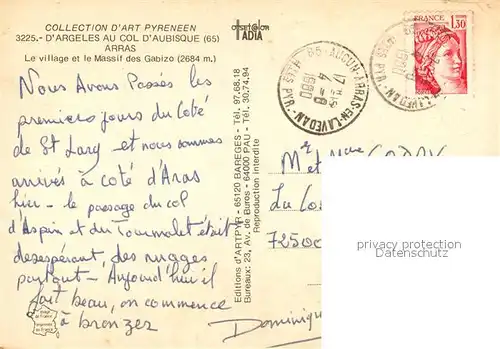 COLLECTION D'ART PYRENEEN
3225.- D'ARGELES AU COL D'AUBISQUE (65)
ARRAS
Le village et le Massif des Gabizo (2684 m.)
Nous Avons Passés les
premiers jours du Coté
de St Lary - et nous sommes
arrivés à coté d'Aras
hier - le paysage du col
d'Aspin et du Tourmalet était
desespérant, des nuages
partout - Aujourd'hui il
fait beau, on commence
à bronzer
Dominique
Editions d'ARTPYR - 65120 BAREGES - Tél. 97.68.18
Bureaux: 23, Av. de Buros - 64000 PAU - Tél. 30.74.94
Reproduction interdite
IADIA
65-AUCUN-ARRAS-EN-LAVEDAN
HTES PYR.
17 H
4 - 8
1980
FRANCE
1,30
Mr et Mme
72500
privacy protection
Datenschutz